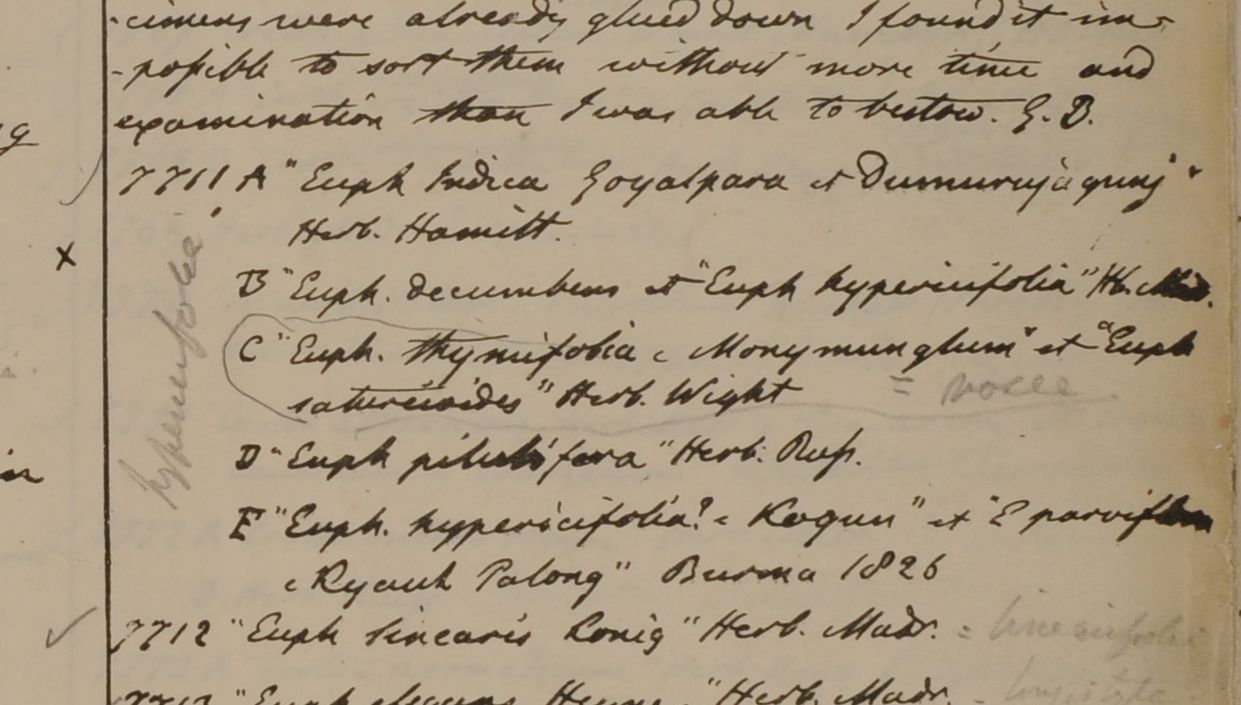 -cimens were already glued down I found it im-
-possible to sort them without more time and
examination than I was able to bestow. G. B.
7711 A "Euph Indica Goyalpara et Dumurujagunj"
Herb. Hamilt.
x
B "Euph. decumbens et "Euph hypericifolia" Hb. Mad.
C "Euph. thymifolia c Monymunglum" et "Euph
satureioides" Herb. Wight
= rosea
D "Euph pilulifera" Herb. Russ.
E "Euph. hypericifolia? c Kogun" et "E parviflora
c Kyauk Talong" Burma 1826
7712 "Euph linearis Konig" Herb. Madr. = linearifolia
7713 "Euph elegans Heyne "Herb. Madr.